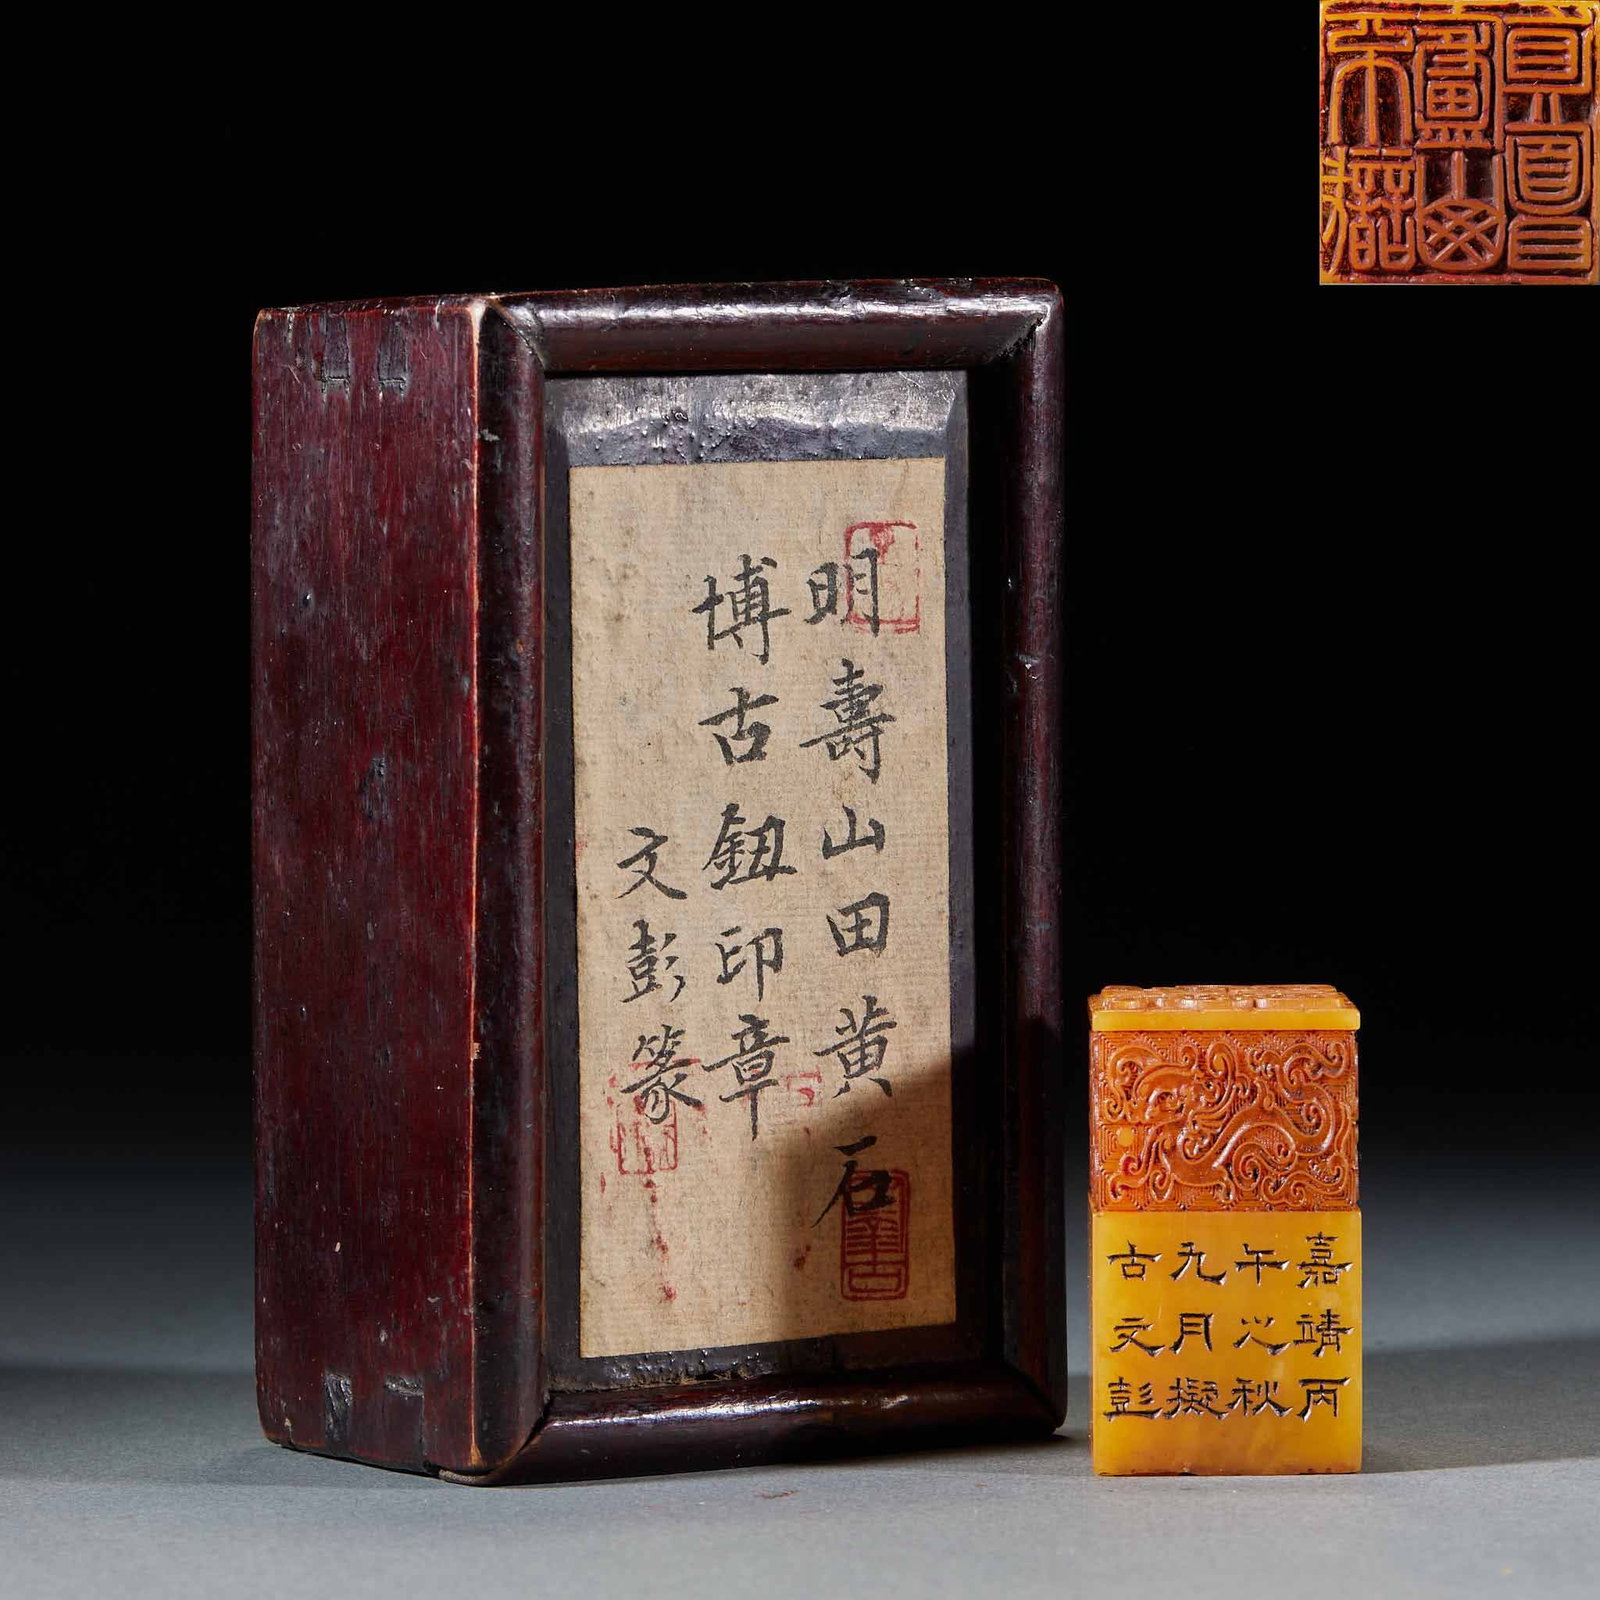 明壽山田黃石
博古鈕印章
文彭篆
嘉靖丙
午之秋
九月擬
古文彭